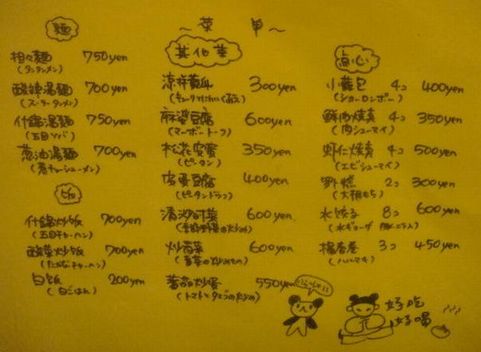 ～菜単～
麺
担々麺 750yen
(タンタンメン)
酸辣湯麺 700yen
(スーラータンメン)
什錦湯麺 750yen
(五目ソバ)
葱油湯麺 700yen
(葱チャーシューメン)
什錦炒飯 700yen
(五目チャーハン)
酸菜炒飯 700yen
(たかなチャーハン)
白飯 200yen
(白ごはん)
其他菜
300yen
麻婆豆腐 600yen
(マーボードーフ)
松花皮蛋 350yen
(ピータン)
皮蛋豆腐 400yen
(ピータンドウフ)
600yen
炒青菜 600yen
(青菜の炒めもの)
蕃茄炒蛋 550yen
(トマトとタマゴの炒め)
点心
小籠包 4コ 400yen
(ショーロンポー)
鮮肉焼売 4コ 350yen
(肉シューマイ)
虾仁焼売 4コ 500yen
(エビシューマイ)
2コ 300yen
(大根もち)
水餃子 8コ 600yen
3コ 450yen
(ハルマキ)
好吃
好喝